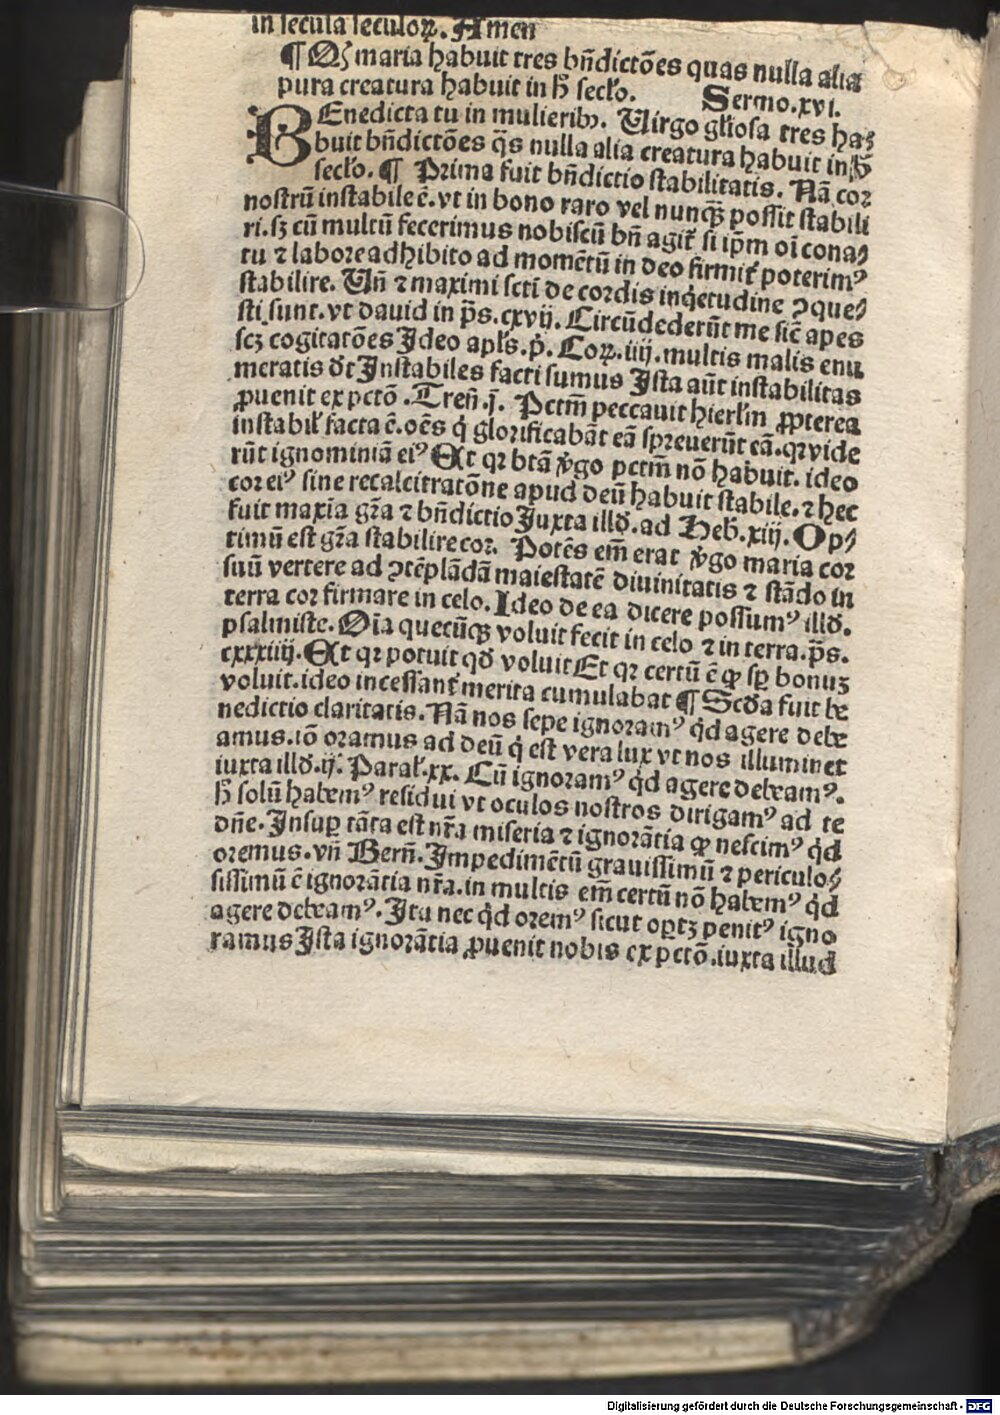 in secula seculoꝝ. Amen
¶ Qꝫ maria habuit tres bn̄dictōes quas nulla alia
pura creatura habuit in h̄ secl̄o. Sermo.xvi.
BEnedicta tu in mulierib⁹. Uirgo gl̄iosa tres ha⸗
buit bn̄dictōes q̄s nulla alia creatura habuit in h̄
secl̄o. ¶ Prima fuit bn̄dictio stabilitatis. Nā cor
nostrū instabile ē. vt in bono raro vel nunqꝫ possit stabili
ri. sꝫ cū multū fecerimus nobiscū bn̄ agit̄ si ip̄m oī cona⸗
tu ⁊ labore adhibito ad momētū in deo firmit̄ poterim⁹
stabilire. Un̄ ⁊ maximi sctī de cordis inq̇etudine ꝯque⸗
sti sunt. vt dauid in p̄s. cxvij. Circūdederūt me sic̄ apes
scꝫ cogitatōes Ideo apl̄s. p̄. Coꝝ. iiij. multis malis enu
meratis dr̄t Instabiles facti sumus Ista aūt instabilitas
ꝓuenit ex pctō. Tren̄. j. Pctm̄ peccauit hierl̄m ꝓpterea
instabil̄ facta ē. oēs q̇ glorificabāt eā spreuerūt eā. qꝛ vide
rūt ignominiā ei⁹ Et qꝛ btā v̄go pctm̄ nō habuit. ideo
cor ei⁹ sine recalcitratōne apud deū habuit stabile. ⁊ hec
fuit maxīa gr̄a ⁊ bn̄dictio Juxta illd̄. ad Heb̄. xiij. Op⸗
timū est gr̄a stabilire cor. Potēs em̄ erat v̄go maria cor
suū vertere ad ꝯtēplādā maiestatē diuinitatis ⁊ stādo in
terra cor firmare in celo. Ideo de ea dicere possum⁹ illd̄.
psalmiste. Oīa quecūqꝫ voluit fecit in celo ⁊ in terra. p̄s.
cxxxiiij. Et qꝛ potuit qd̄ voluit Et qꝛ certū ē ꝙ sꝑ bonuꝫ
voluit. ideo incessant̄ merita cumulabat ¶ Scd̄a fuit be
nedictio claritatis. Nā nos sepe ignoram⁹ qd̄ agere debe
amus. iō oramus ad deū q̇ est vera lux vt nos illuminet
iuxta illd̄. ij. Paral̄. xx. Cū ignoram⁹ qd̄ agere debeam⁹.
h̄ solū habem⁹ residui vt oculos nostros dirigam⁹ ad te
dn̄e. Insuꝑ tāta est nr̄a miseria ⁊ ignorātia ꝙ nescim⁹ qd̄
oremus. vn̄ Bern̄. Impedimētū grauissimū ⁊ periculo⸗
sissimū ē ignorātia nr̄a. in multis em̄ certū nō habem⁹ qd̄
agere debeam⁹. Ita nec qd̄ orem⁹ sicut oꝑtꝫ penit⁹ igno
ramus Ista ignorātia ꝓuenit nobis ex pctō. iuxta illud
Digitalisierung gefördert durch die Deutsche Forschungsgemeinschaft - DFG